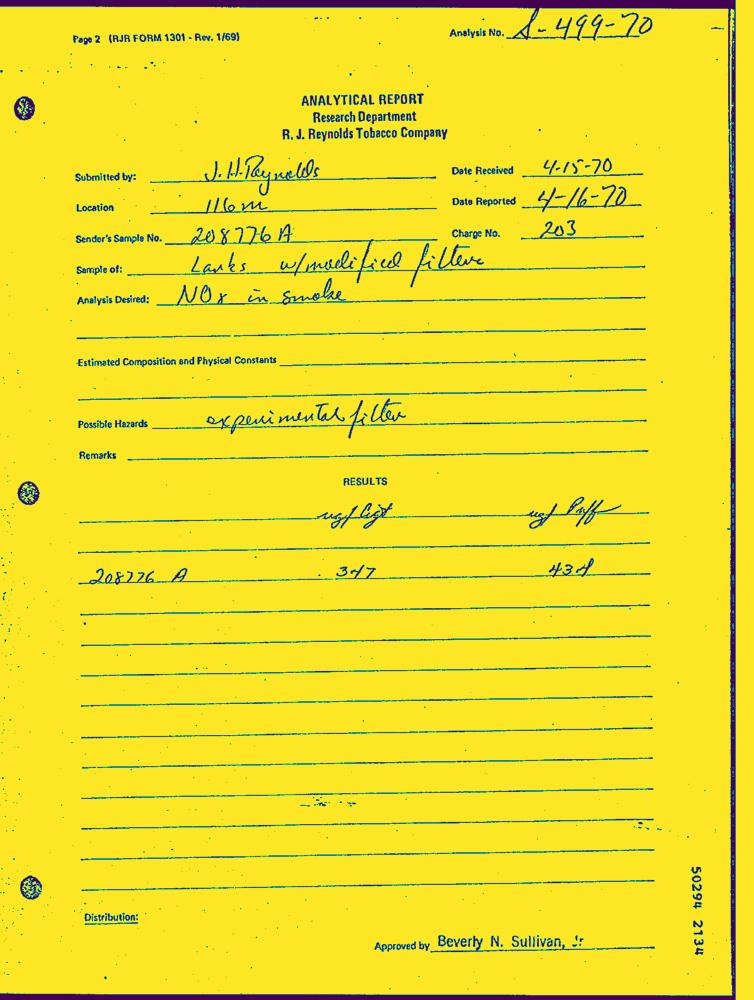 Page 2 (RJR FORM 1301 - Rev. 1/69)
Analysis No. S-499-70
ANALYTICAL REPORT
Research Department
R. J. Reynolds Tobacco Company
Submitted by: J. H. Reynolds Date Received 4-15-70
Location 116 m Date Reported 4-16-70
Sender's Sample No. 208776 A Charge No. 203
Sample of: w/modified filters
Analysis Desired: NOx in smoke
Estimated Composition and Physical Constants
Possible Hazards experimental filter
Remarks
RESULTS
ug/Cigt ug/Puff
208776 A 347 43.4
Distribution:
Approved by Beverly N. Sullivan, Jr
50294 2134